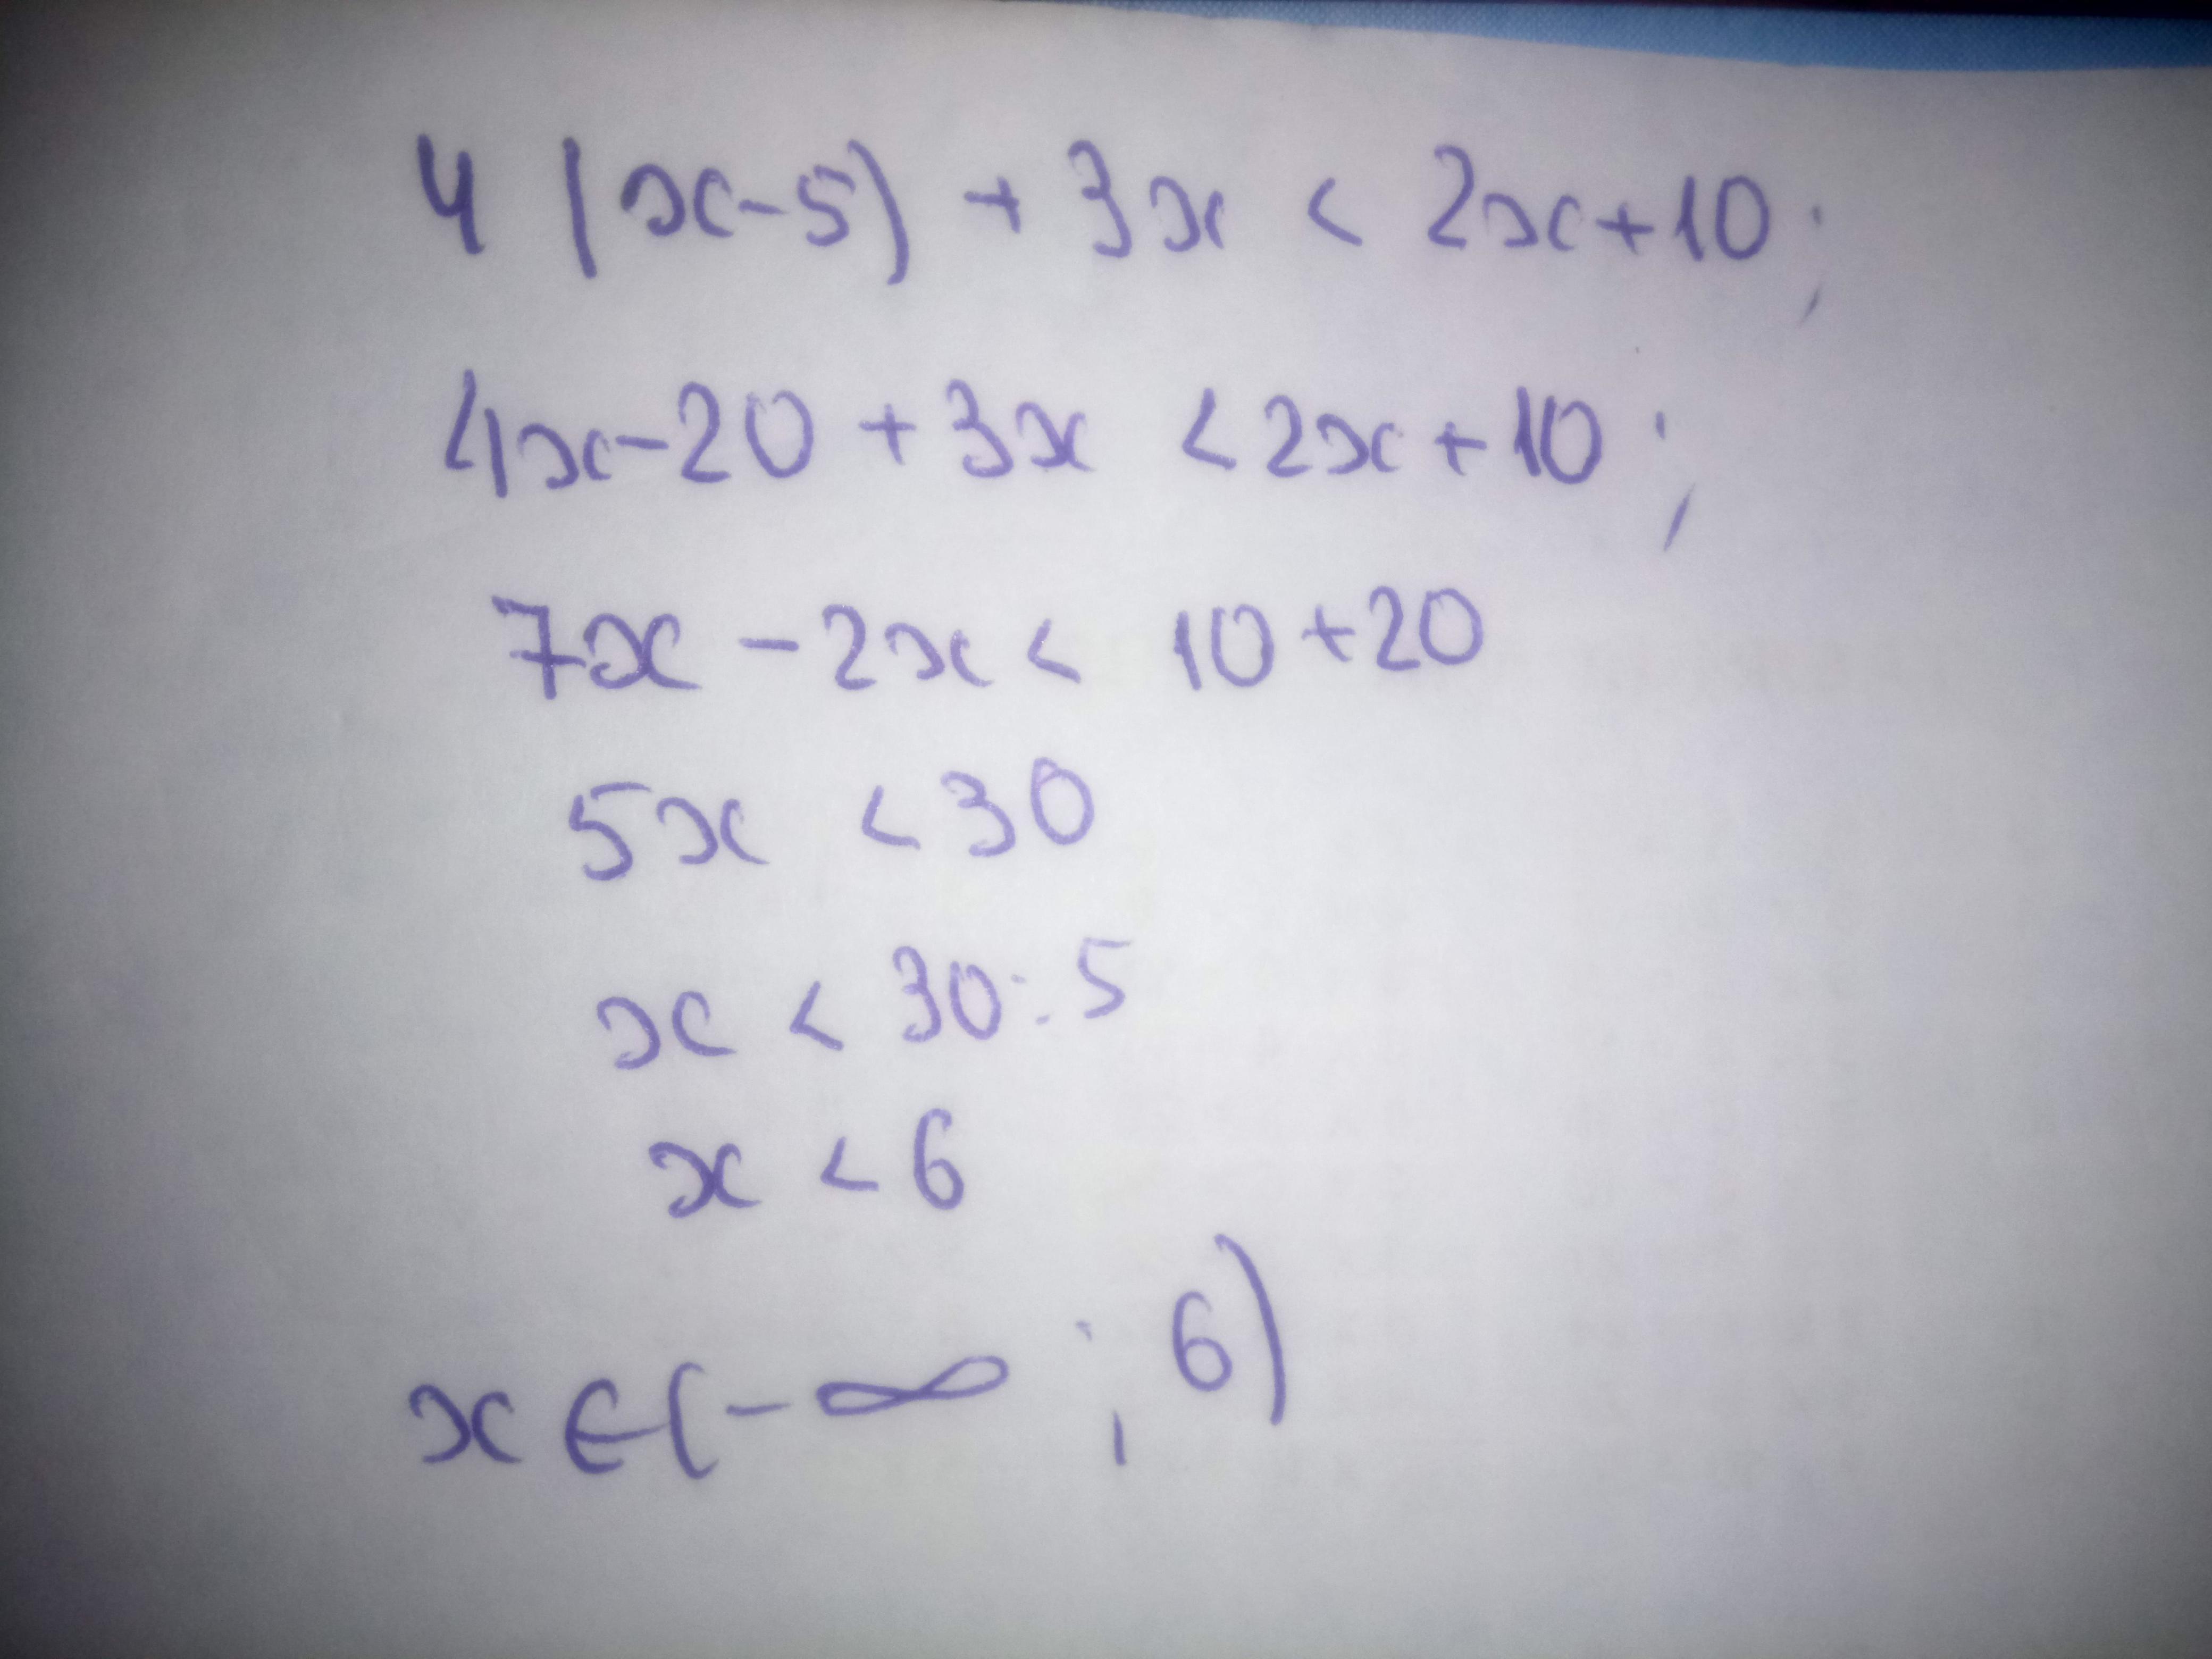 4(x-5)+3x<2x+10;
4x-20+3x<2x+10;
7x-2x<10+20
5x<30
x<30:5
x<6
x∈(-∞;6)